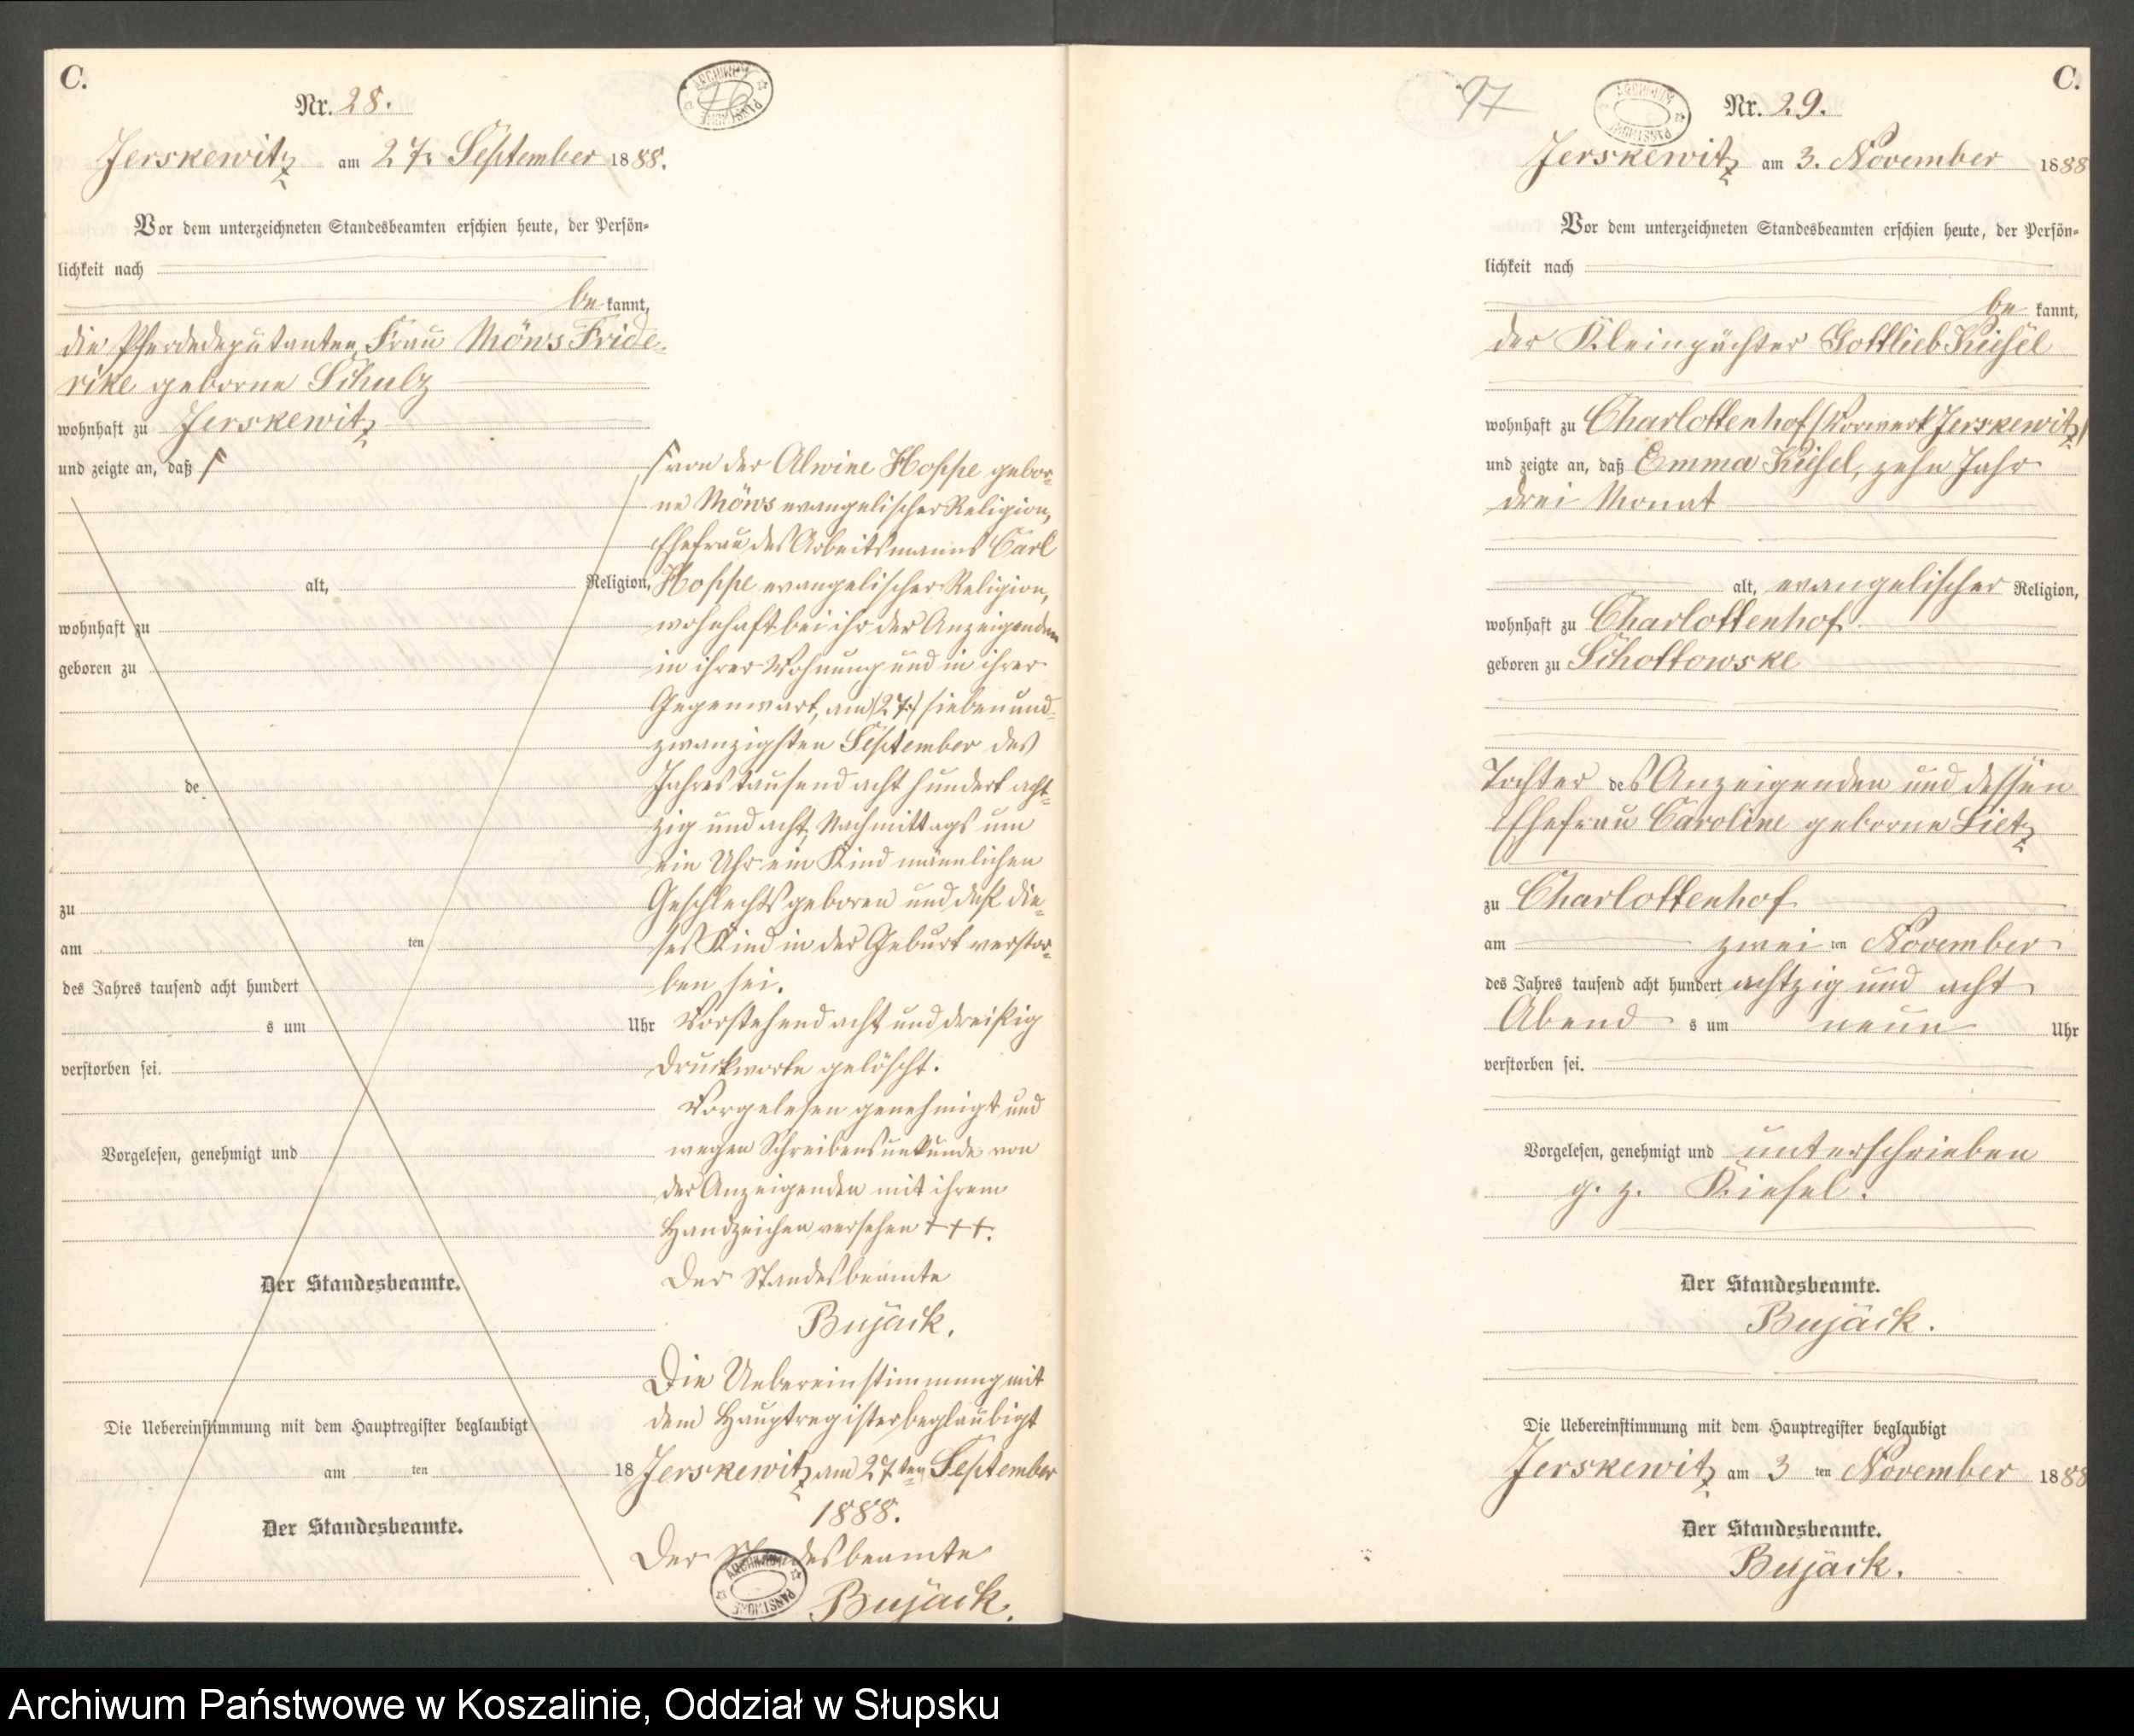 C.
Nr. 28.
Jerskewitz am 27. September 1888.
Vor dem unterzeichneten Standesbeamten erschien heute, der Persön-
lichkeit nach
be kannt,
die Pferdedeputanten Frau Möws Fride-
rike geborne Schulz
wohnhaft zu Jerskewitz
und zeigte an, daß
alt, Religion,
wohnhaft zu
geboren zu
de
zu
am ten
des Jahres tausend acht hundert
s um Uhr
verstorben sei.
Vorgelesen, genehmigt und
Der Standesbeamte.
Die Uebereinstimmung mit dem Hauptregister beglaubigt
am ten 18
Der Standesbeamte.
von der Alwine Hoppe gebor-
ne Möws evangelischer Religion,
Ehefrau des Arbeitsmanns Carl
Hoppe evangelischer Religion,
wohnhaft bei ihr der Anzeigenden
in ihrer Wohnung und in ihrer
Gegenwart, am (27.) siebenund-
zwanzigsten September des
Jahres tausend acht hundert acht-
zig und acht, Nachmittags um
ein Uhr ein Kind männlichen
Geschlechts geboren und daß die-
ses Kind in der Geburt verstor-
ben sei.
Vorstehend acht und dreißig
Druckworte gelöscht.
Vorgelesen genehmigt und
wegen Schreibensunkunde von
der Anzeigenden mit ihrem
Handzeichen versehen +++.
Der Standesbeamte
Bujack.
Die Uebereinstimmung mit
dem Hauptregister beglaubigt
Jerskewitz am 27ten September
1888.
Der Standesbeamte
Bujack.
97
C.
Nr. 29.
Jerskewitz am 3. November 1888
Vor dem unterzeichneten Standesbeamten erschien heute, der Persön-
lichkeit nach
be kannt,
der Kleinpächter Gottlieb Kiesel
wohnhaft zu Charlottenhof (Vorwerk Jerskewitz)
und zeigte an, daß Emma Kiesel, zehn Jahr
drei Monat
alt, evangelischer Religion,
wohnhaft zu Charlottenhof
geboren zu Schottowske
Tochter des Anzeigenden und dessen
Ehefrau Caroline geborne Lietz
zu Charlottenhof
am zwei ten November
des Jahres tausend acht hundert achtzig und acht
Abend s um neun Uhr
verstorben sei.
Vorgelesen, genehmigt und unterschrieben
g. z. Kiesel.
Der Standesbeamte.
Bujack.
Die Uebereinstimmung mit dem Hauptregister beglaubigt
Jerskewitz am 3 ten November 1888
Der Standesbeamte.
Bujack.
Archiwum Państwowe w Koszalinie, Oddział w Słupsku